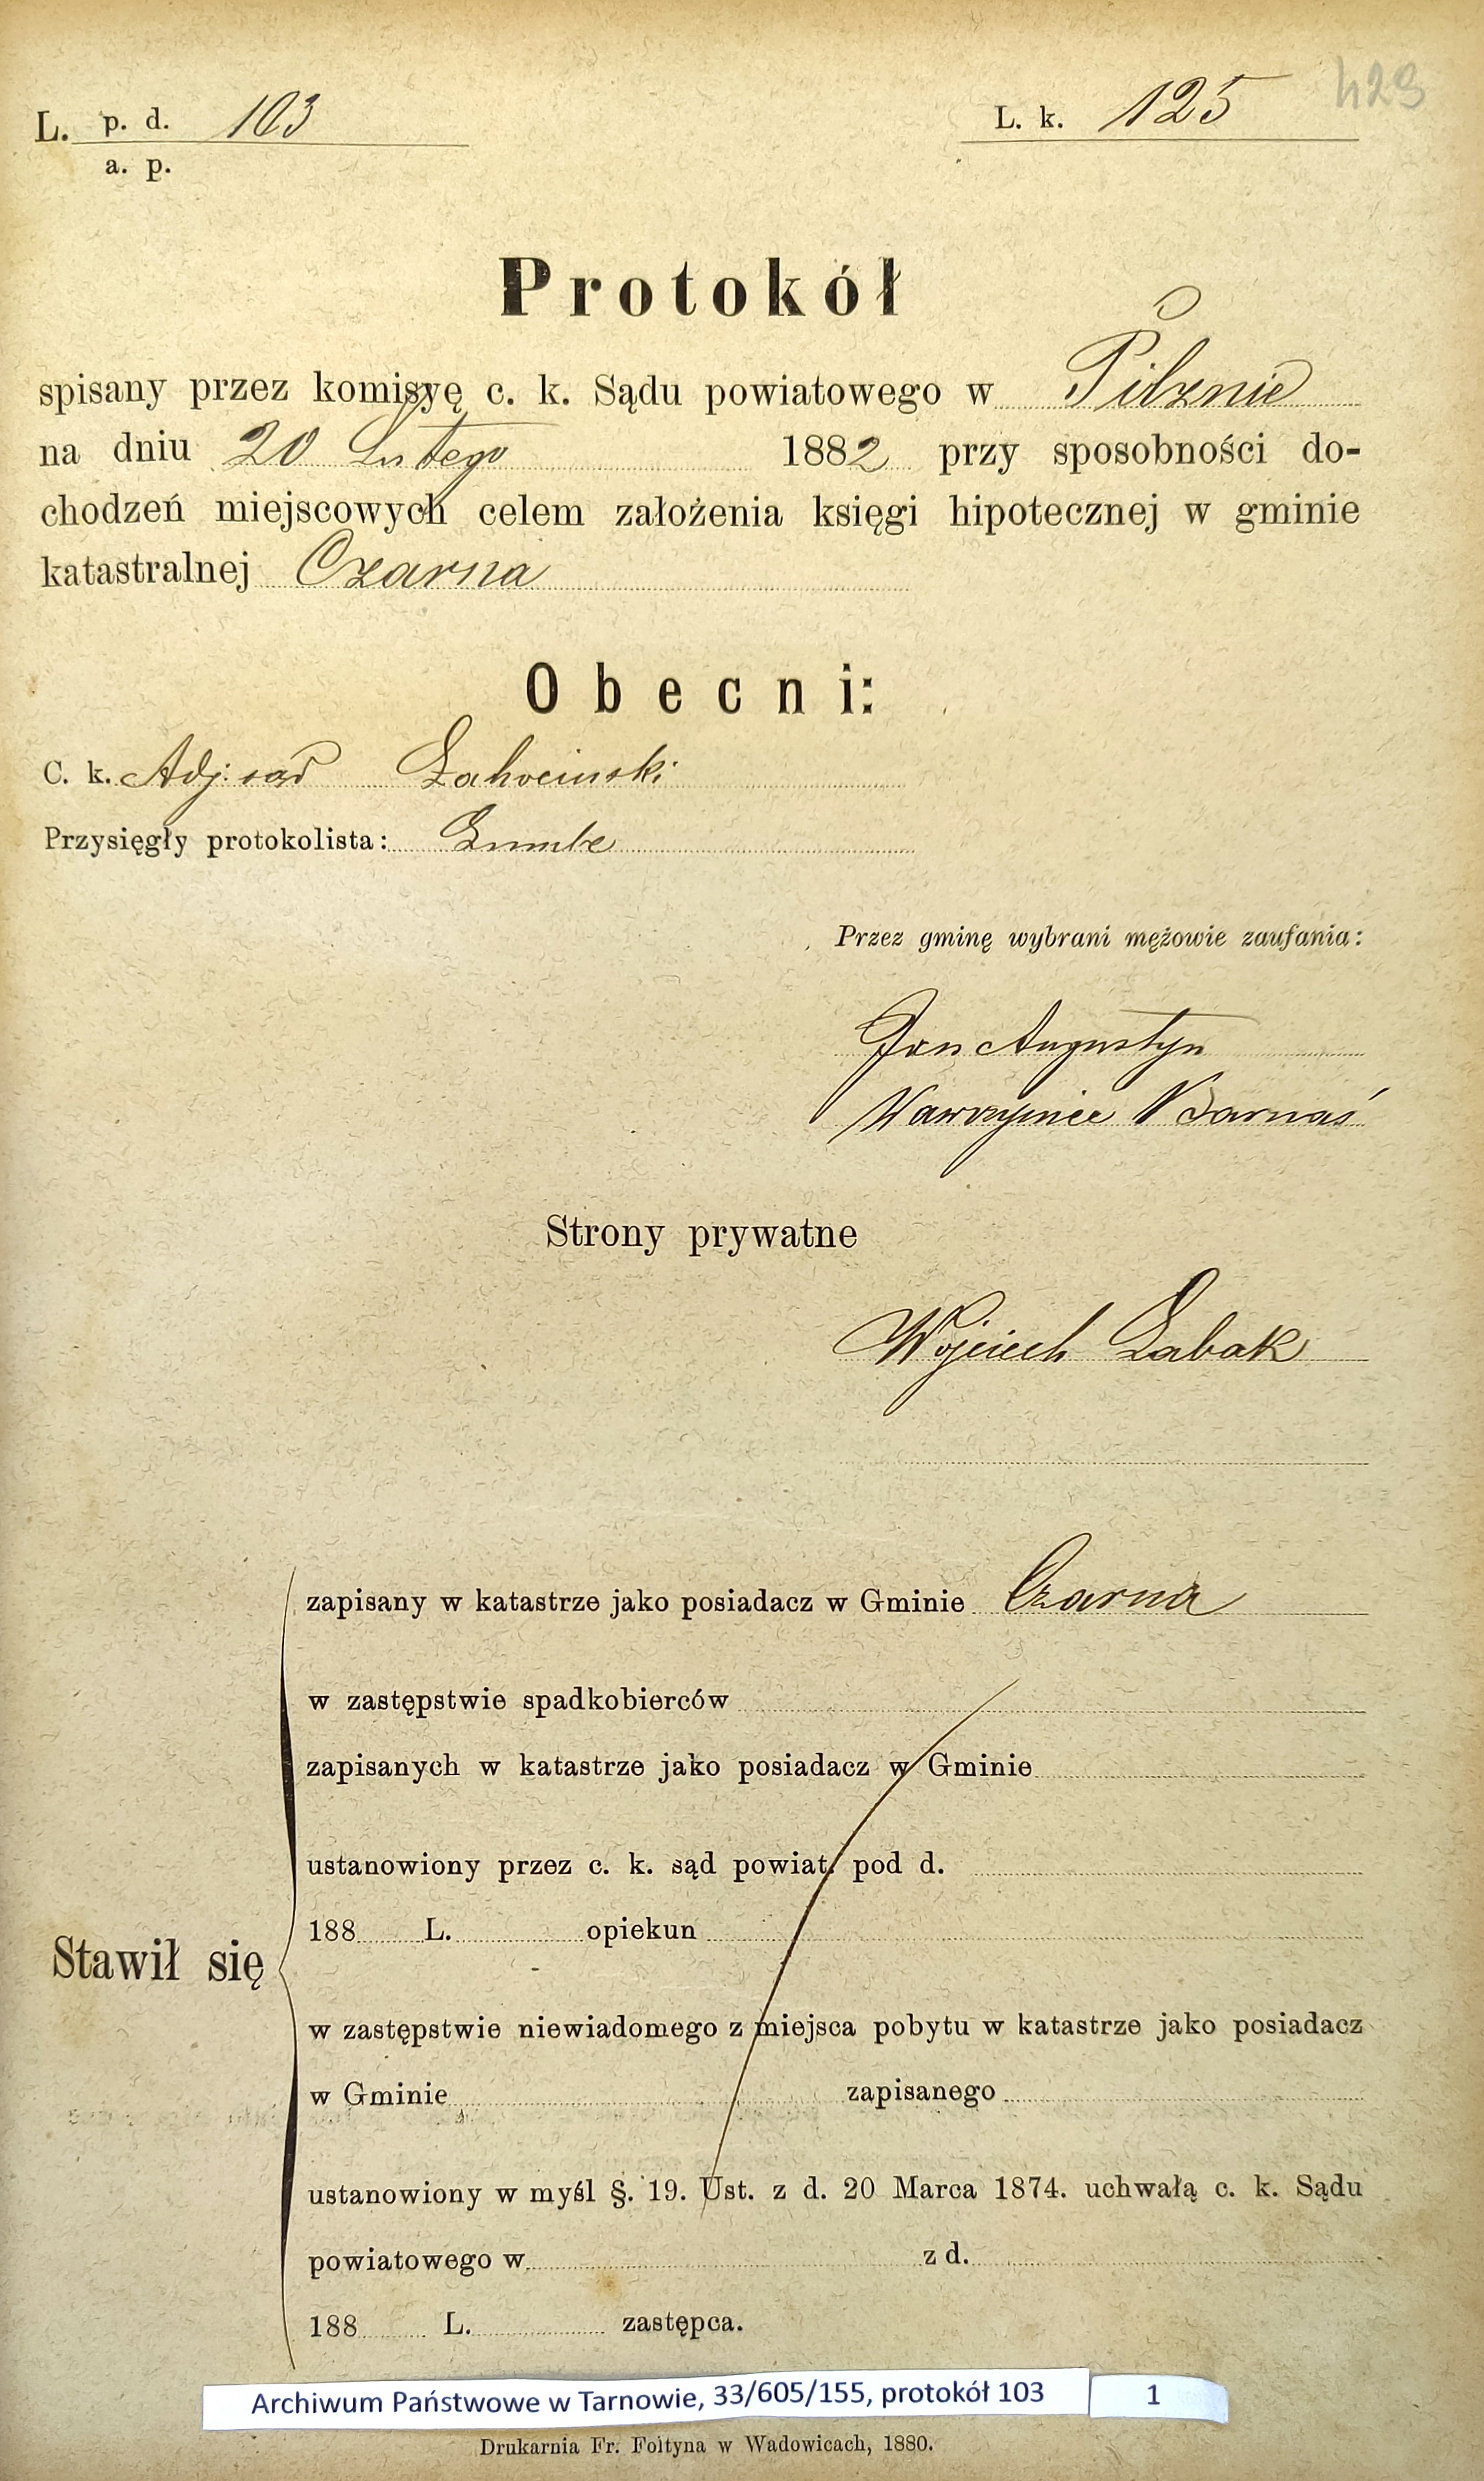 L. p. d. 103
a. p.
L. k. 125
429
Protokół
spisany przez komisyę c. k. Sądu powiatowego w Pilznie
na dniu 20 Lutego 1882 przy sposobności do-
chodzeń miejscowych celem założenia księgi hipotecznej w gminie
katastralnej Czarna
Obecni:
C. k. Adj. sąd
Przysięgły protokolista:
Przez gminę wybrani mężowie zaufania:
Jan Augustyn
Wawrzyniec Barnaś
Strony prywatne
Wojciech Żabak
zapisany w katastrze jako posiadacz w Gminie Czarna
w zastępstwie spadkobierców
zapisanych w katastrze jako posiadacz w Gminie
ustanowiony przez c. k. sąd powiat. pod d.
188 L. opiekun
Stawił się
w zastępstwie niewiadomego z miejsca pobytu w katastrze jako posiadacz
w Gminie zapisanego
ustanowiony w myśl §. 19. Ust. z d. 20 Marca 1874. uchwałą c. k. Sądu
powiatowego w z d.
188 L. zastępca.
Archiwum Państwowe w Tarnowie, 33/605/155, protokół 103 1
Drukarnia Fr. Foltyna w Wadowicach, 1880.